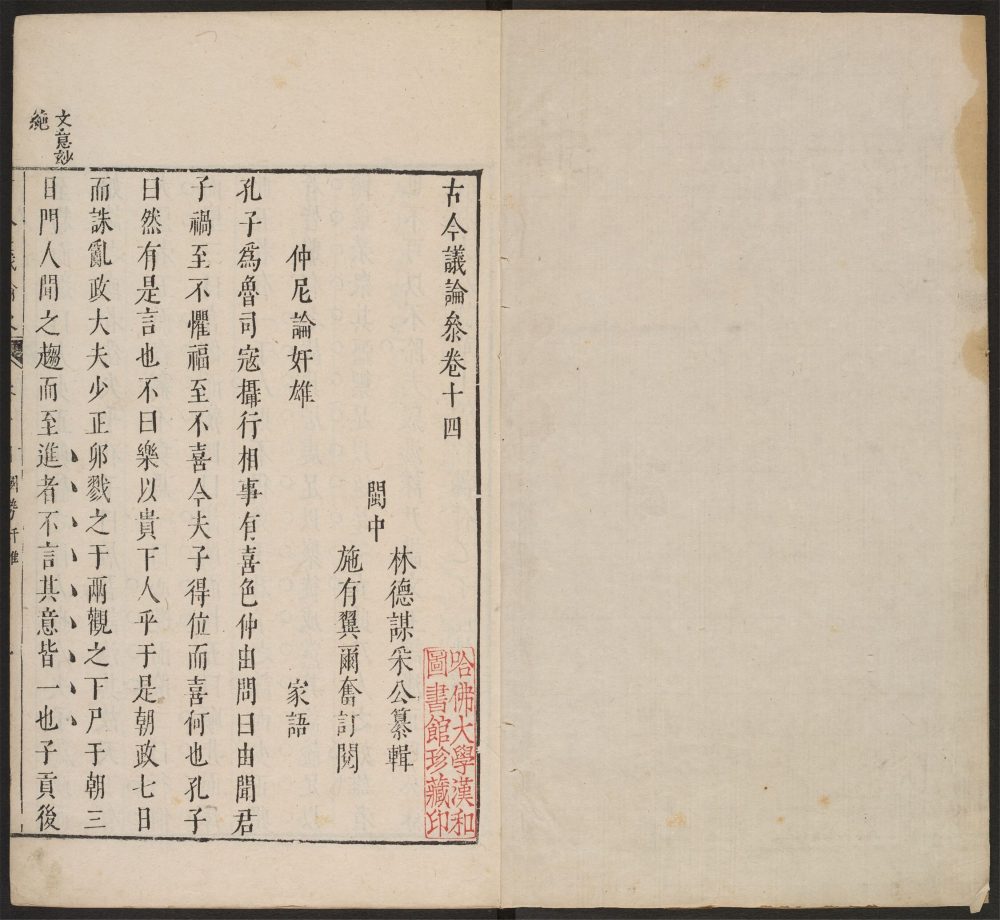 古今議論叅卷十四
閩中
林德謀采公纂輯
施有翼爾奮訂閱
仲尼論奸雄　家語
孔子爲魯司寇攝行相事有喜色仲由問曰由聞君
子禍至不懼福至不喜今夫子得位而喜何也孔子
曰然有是言也不曰樂以貴下人乎于是朝政七日
而誅亂政大夫少正卯戮之于兩觀之下尸于朝三
日門人聞之趨而至進者不言其意皆一也子貢後
文意妙
絶
哈佛大學漢和
圖書館珍藏印